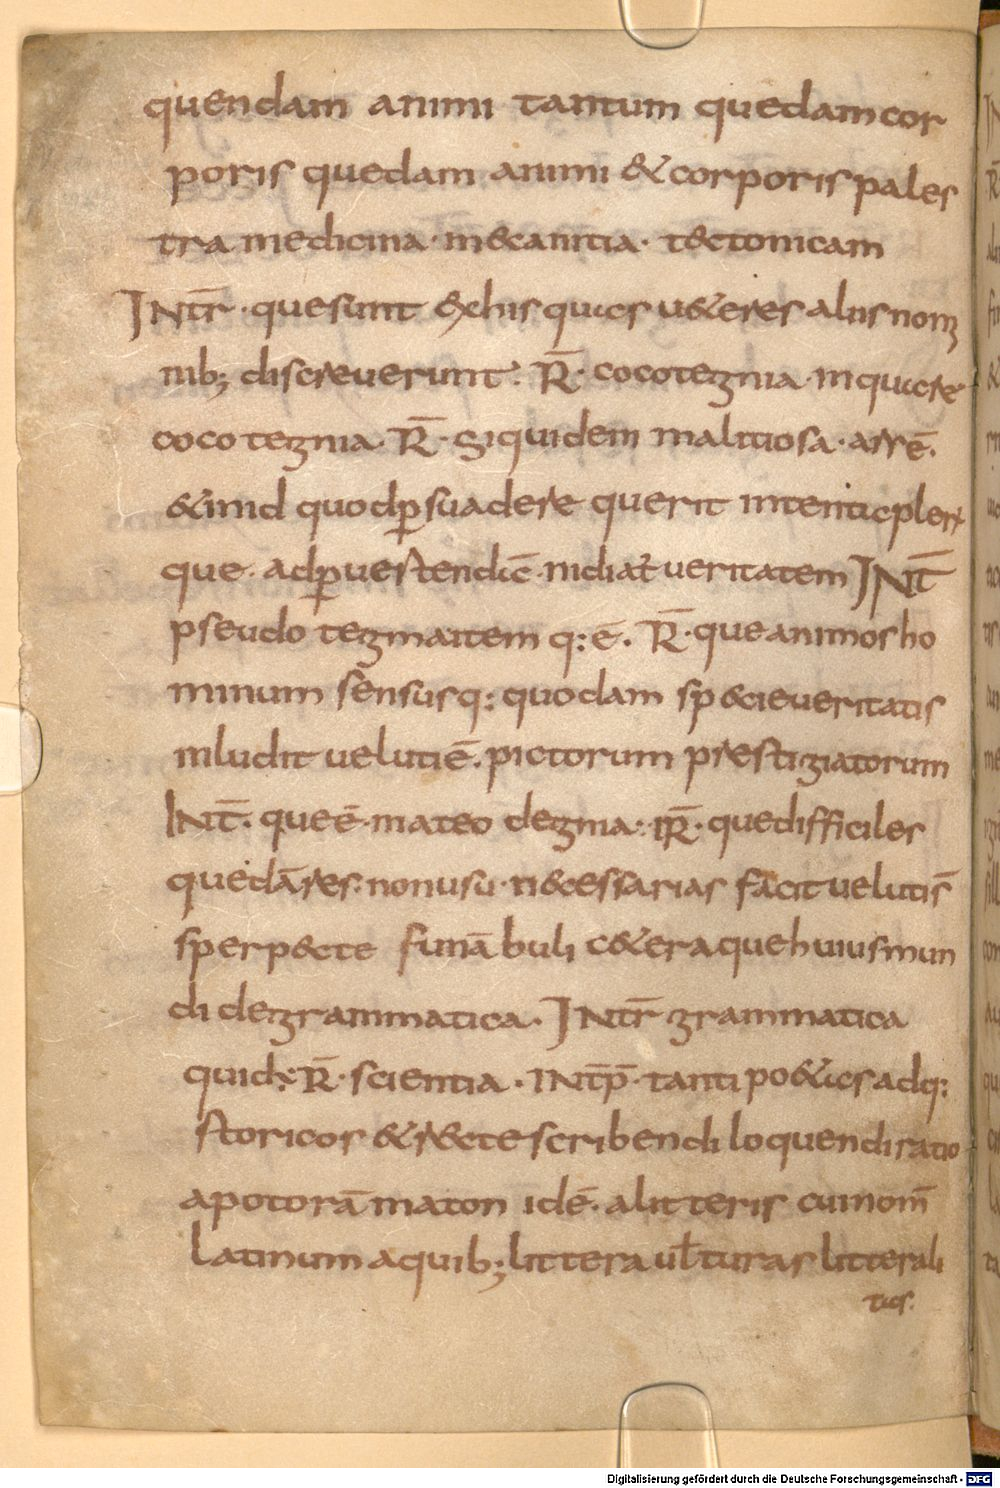 quendam animi tantum quedam cor
poris quedam animi & corporis pales
tra medicina · m&canitia · t&ctonicam
INTr̄ · que sunt & his qui cs u&eres aliis nom
nib; discreuerunt · R̄ · cocotegnia · in qui cre
cocotegnia · R̄ · Siquidem malitiosa · arrē.
& in id quod p̱suadere querit intentic plerr
que · ad p̱uertendīc · nidiat̄ ueritatem INT̄
pseudo tegmaitem q: ē. R̄ · que animos ho
minum sensusq: quodam sp&cie ueritatis
inludit ueluti ē. pictorum prestigiatorum
INT̄. que ē mateo degma · R̄ · que difficiles
quedā res · non usu · n&cessarias facit uelut is̄
sperp&cte funābuli c&era que huius mun
di degrammatica. INTr̄ grammatica
quid; R̄ · scientia · INT̄P̄ · tanti po&ics ad q:
storicos & r&cte scribendi loquendi ratio
apotorāmaton idē. alitteris cui nom̄
latinum a quib; littera ul̄turas litterali
tics.
Digitalisierung gefördert durch die Deutsche Forschungsgemeinschaft - DFG